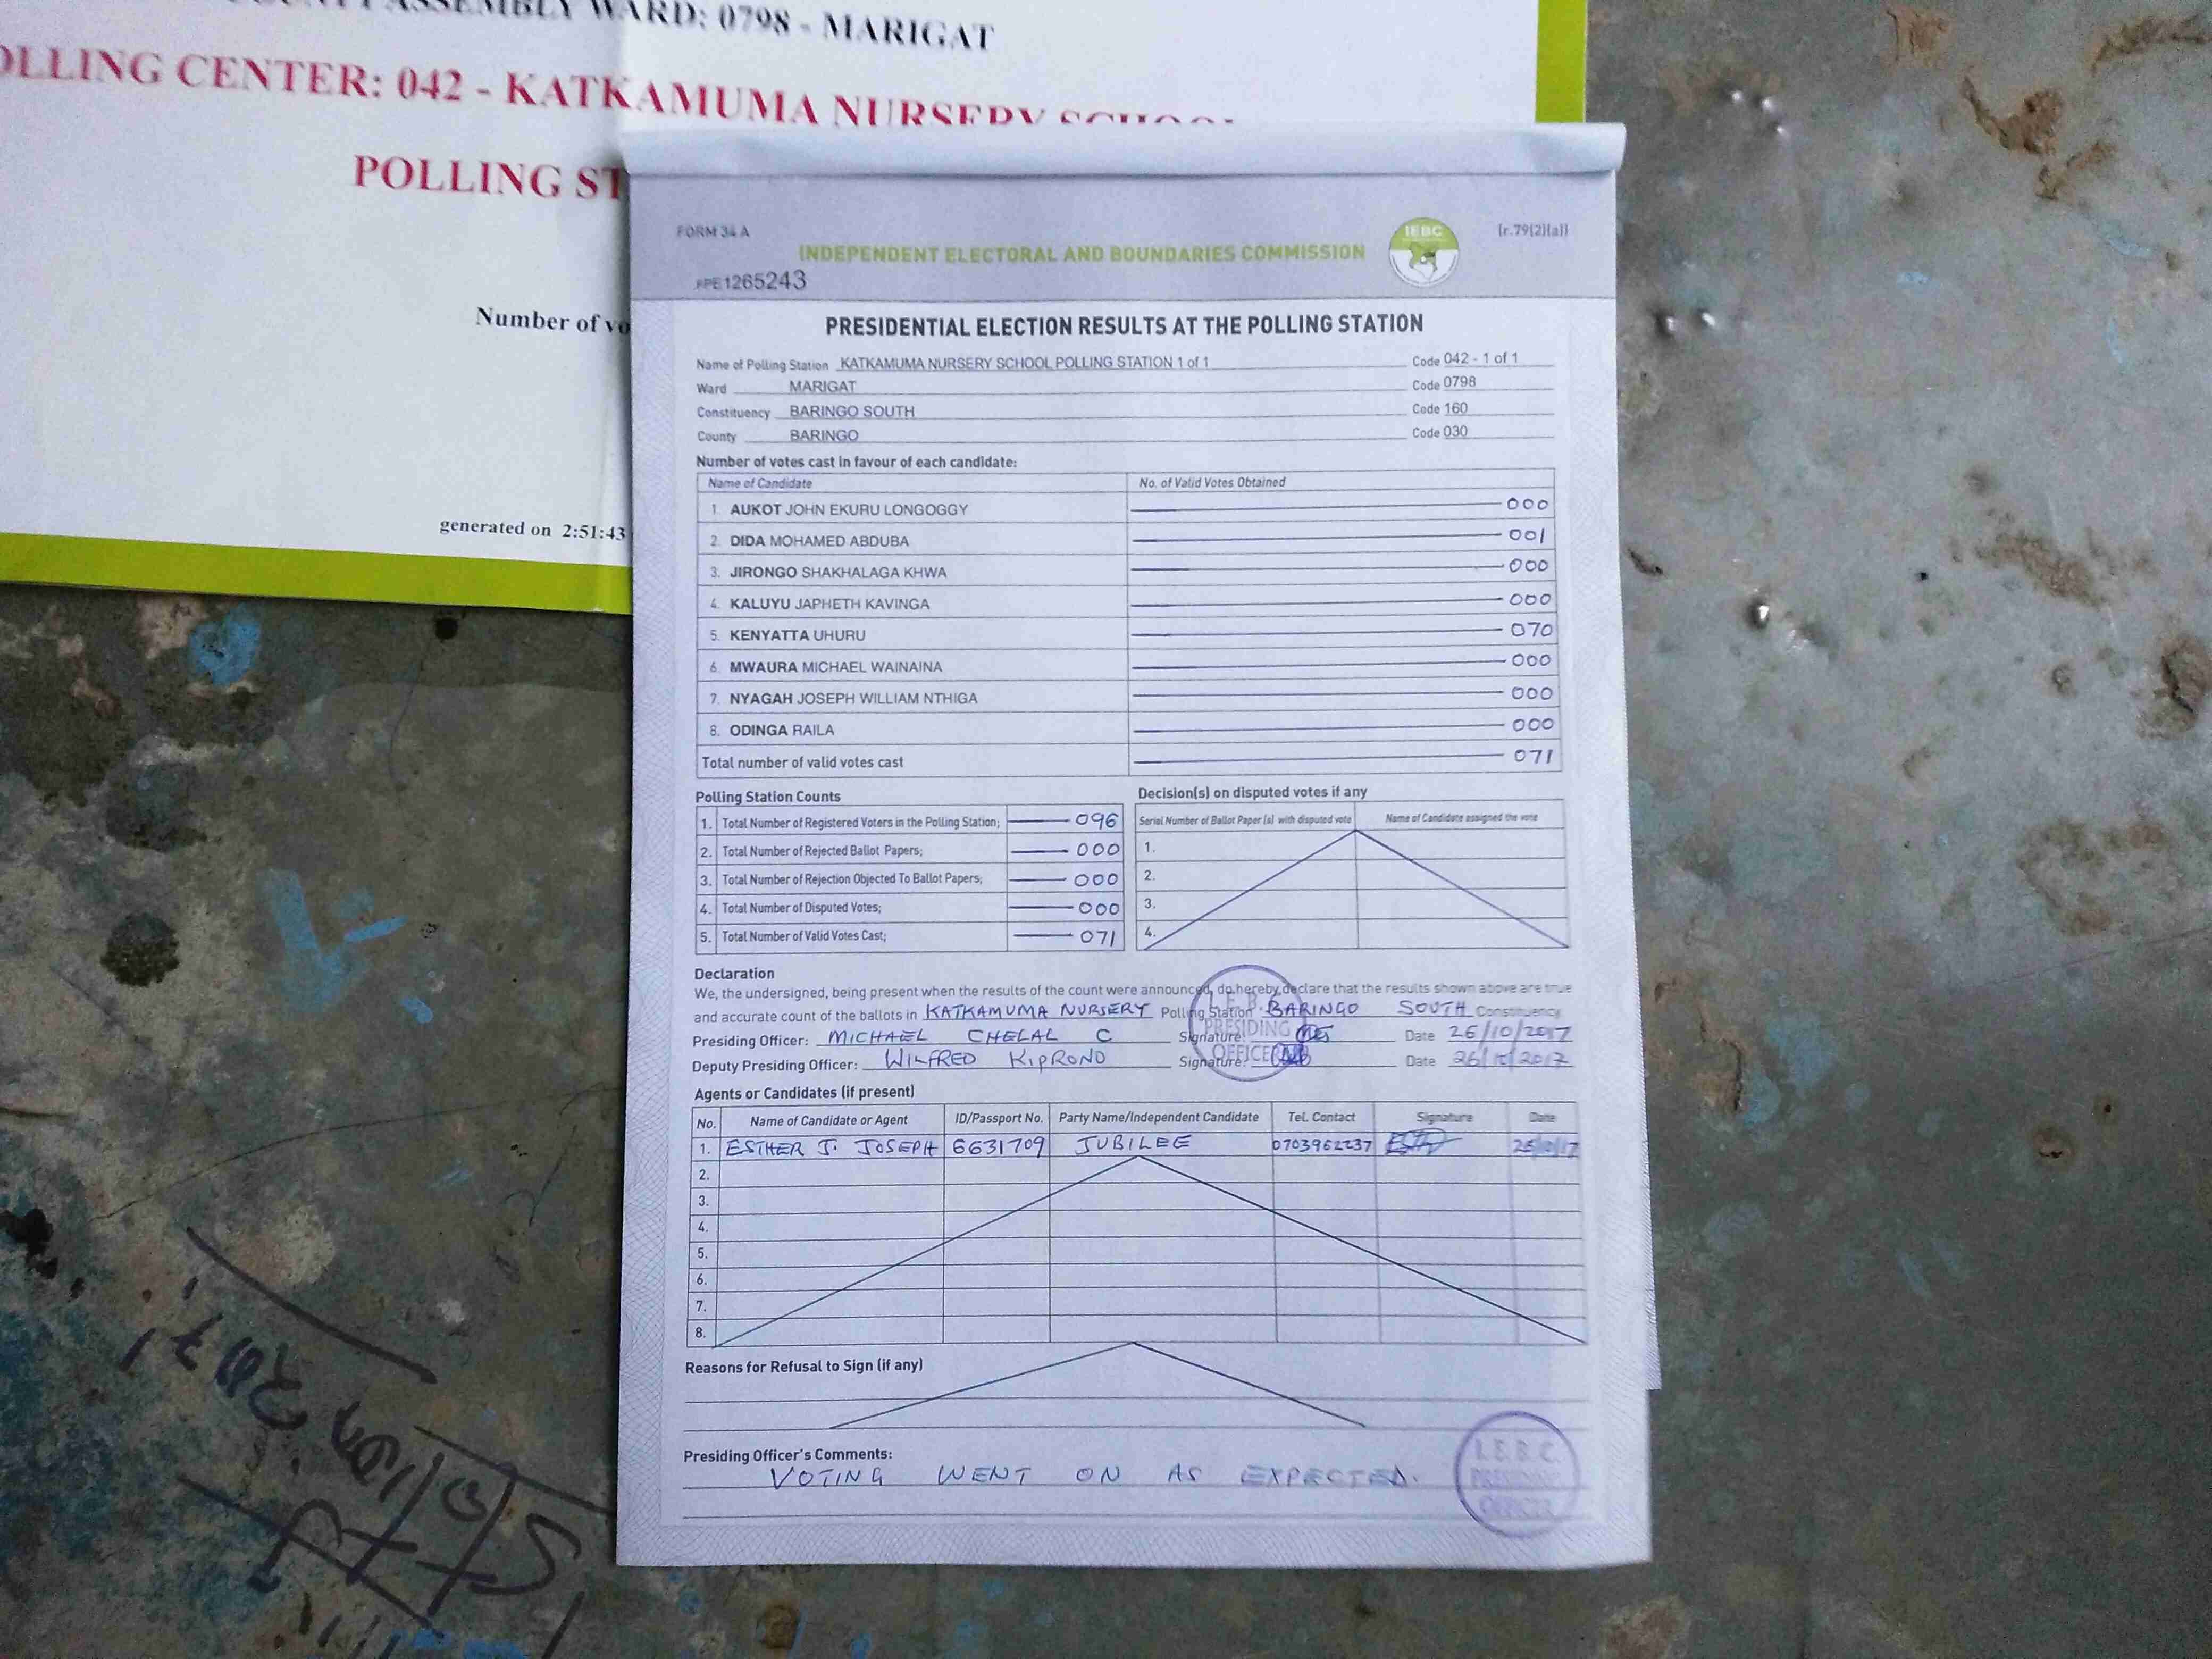 ASSEMBLY WARD: 0798 - MARIGAT
POLLING CENTER: 042 - KATKAMUMA NURSERY SCHOOL
POLLING ST
Number of vo
generated on 2:51:43
FORM 34 A
IEBC
[r.79(2)(a)]
INDEPENDENT ELECTORAL AND BOUNDARIES COMMISSION
PE1265243
PRESIDENTIAL ELECTION RESULTS AT THE POLLING STATION
Name of Polling Station KATKAMUMA NURSERY SCHOOL POLLING STATION 1 of 1 Code 042 - 1 of 1
Ward MARIGAT Code 0798
Constituency BARINGO SOUTH Code 160
County BARINGO Code 030
Number of votes cast in favour of each candidate:
Name of Candidate No. of Valid Votes Obtained
1. AUKOT JOHN EKURU LONGOGGY 000
2. DIDA MOHAMED ABDUBA 001
3. JIRONGO SHAKHALAGA KHWA 000
4. KALUYU JAPHETH KAVINGA 000
5. KENYATTA UHURU 070
6. MWAURA MICHAEL WAINAINA 000
7. NYAGAH JOSEPH WILLIAM NTHIGA 000
8. ODINGA RAILA 000
Total number of valid votes cast 071
Polling Station Counts
1. Total Number of Registered Voters in the Polling Station; 096
2. Total Number of Rejected Ballot Papers; 000
3. Total Number of Rejection Objected To Ballot Papers; 000
4. Total Number of Disputed Votes; 000
5. Total Number of Valid Votes Cast; 071
Decision(s) on disputed votes if any
Serial Number of Ballot Paper (s) with disputed vote Name of Candidate assigned the vote
1.
2.
3.
4.
Declaration
We, the undersigned, being present when the results of the count were announced, do hereby declare that the results shown above are true
and accurate count of the ballots in KATKAMUMA NURSERY Polling Station BARINGO SOUTH Constituency
Presiding Officer: MICHAEL CHELAL C Signature: Date 26/10/2017
Deputy Presiding Officer: WILFRED KIPRONO Signature: Date 26/10/2017
I.E.B.C
PRESIDING
OFFICER
Agents or Candidates (if present)
No. Name of Candidate or Agent ID/Passport No. Party Name/Independent Candidate Tel. Contact Signature Date
1. ESTHER J. JOSEPH 6631709 JUBILEE 0703962237 26/10/17
2.
3.
4.
5.
6.
7.
8.
Reasons for Refusal to Sign (if any)
Presiding Officer's Comments:
VOTING WENT ON AS EXPECTED.
I.E.B.C.
PRESIDING
OFFICER